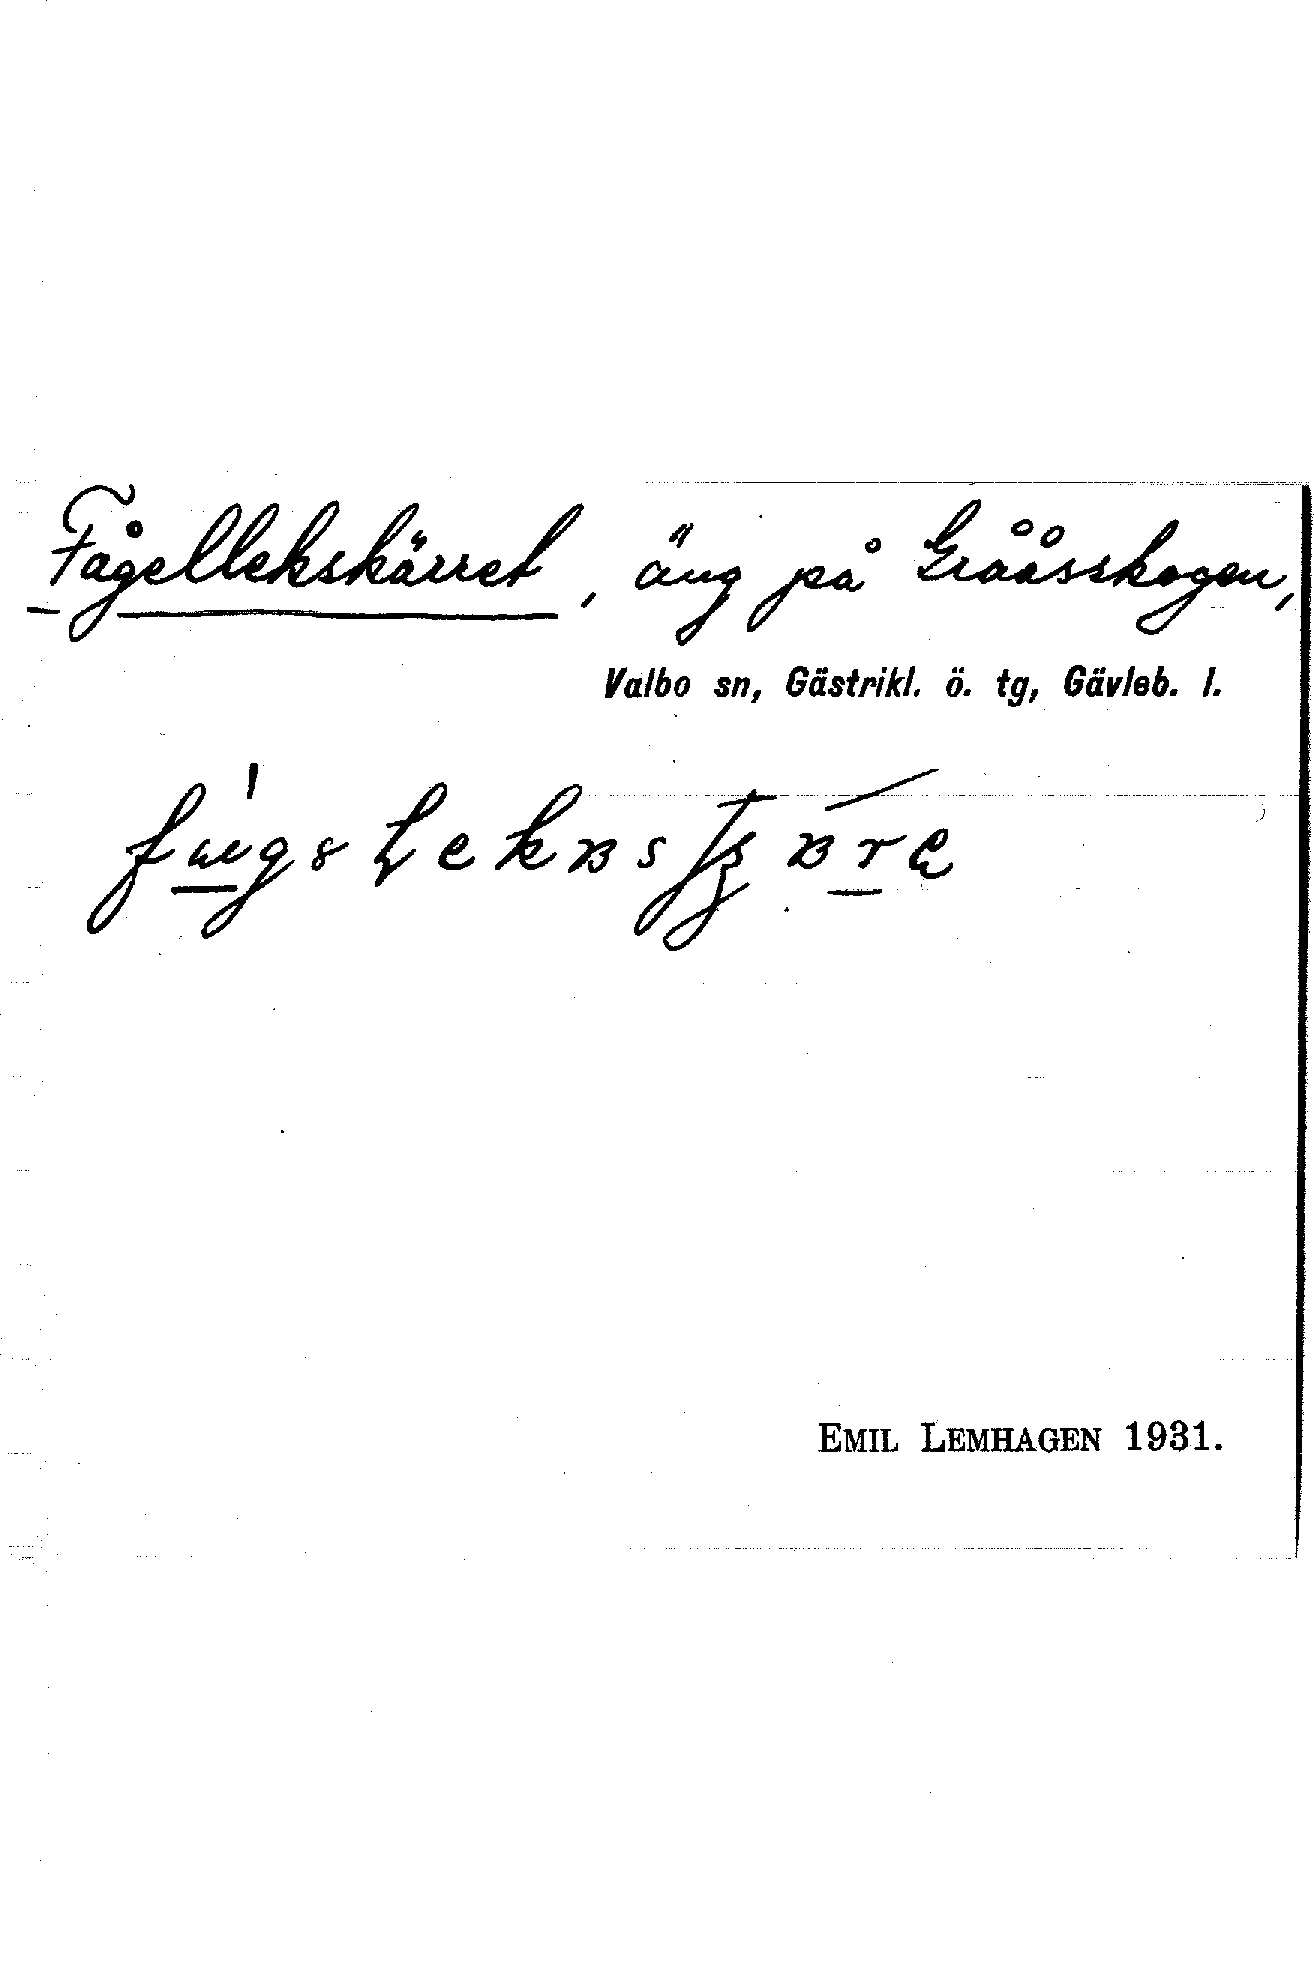 Fågellekskärret, äng på Grååsskogen,
Valbo sn, Gästrikl. ö. tg, Gävleb. l.
EMIL LEMHAGEN 1931.